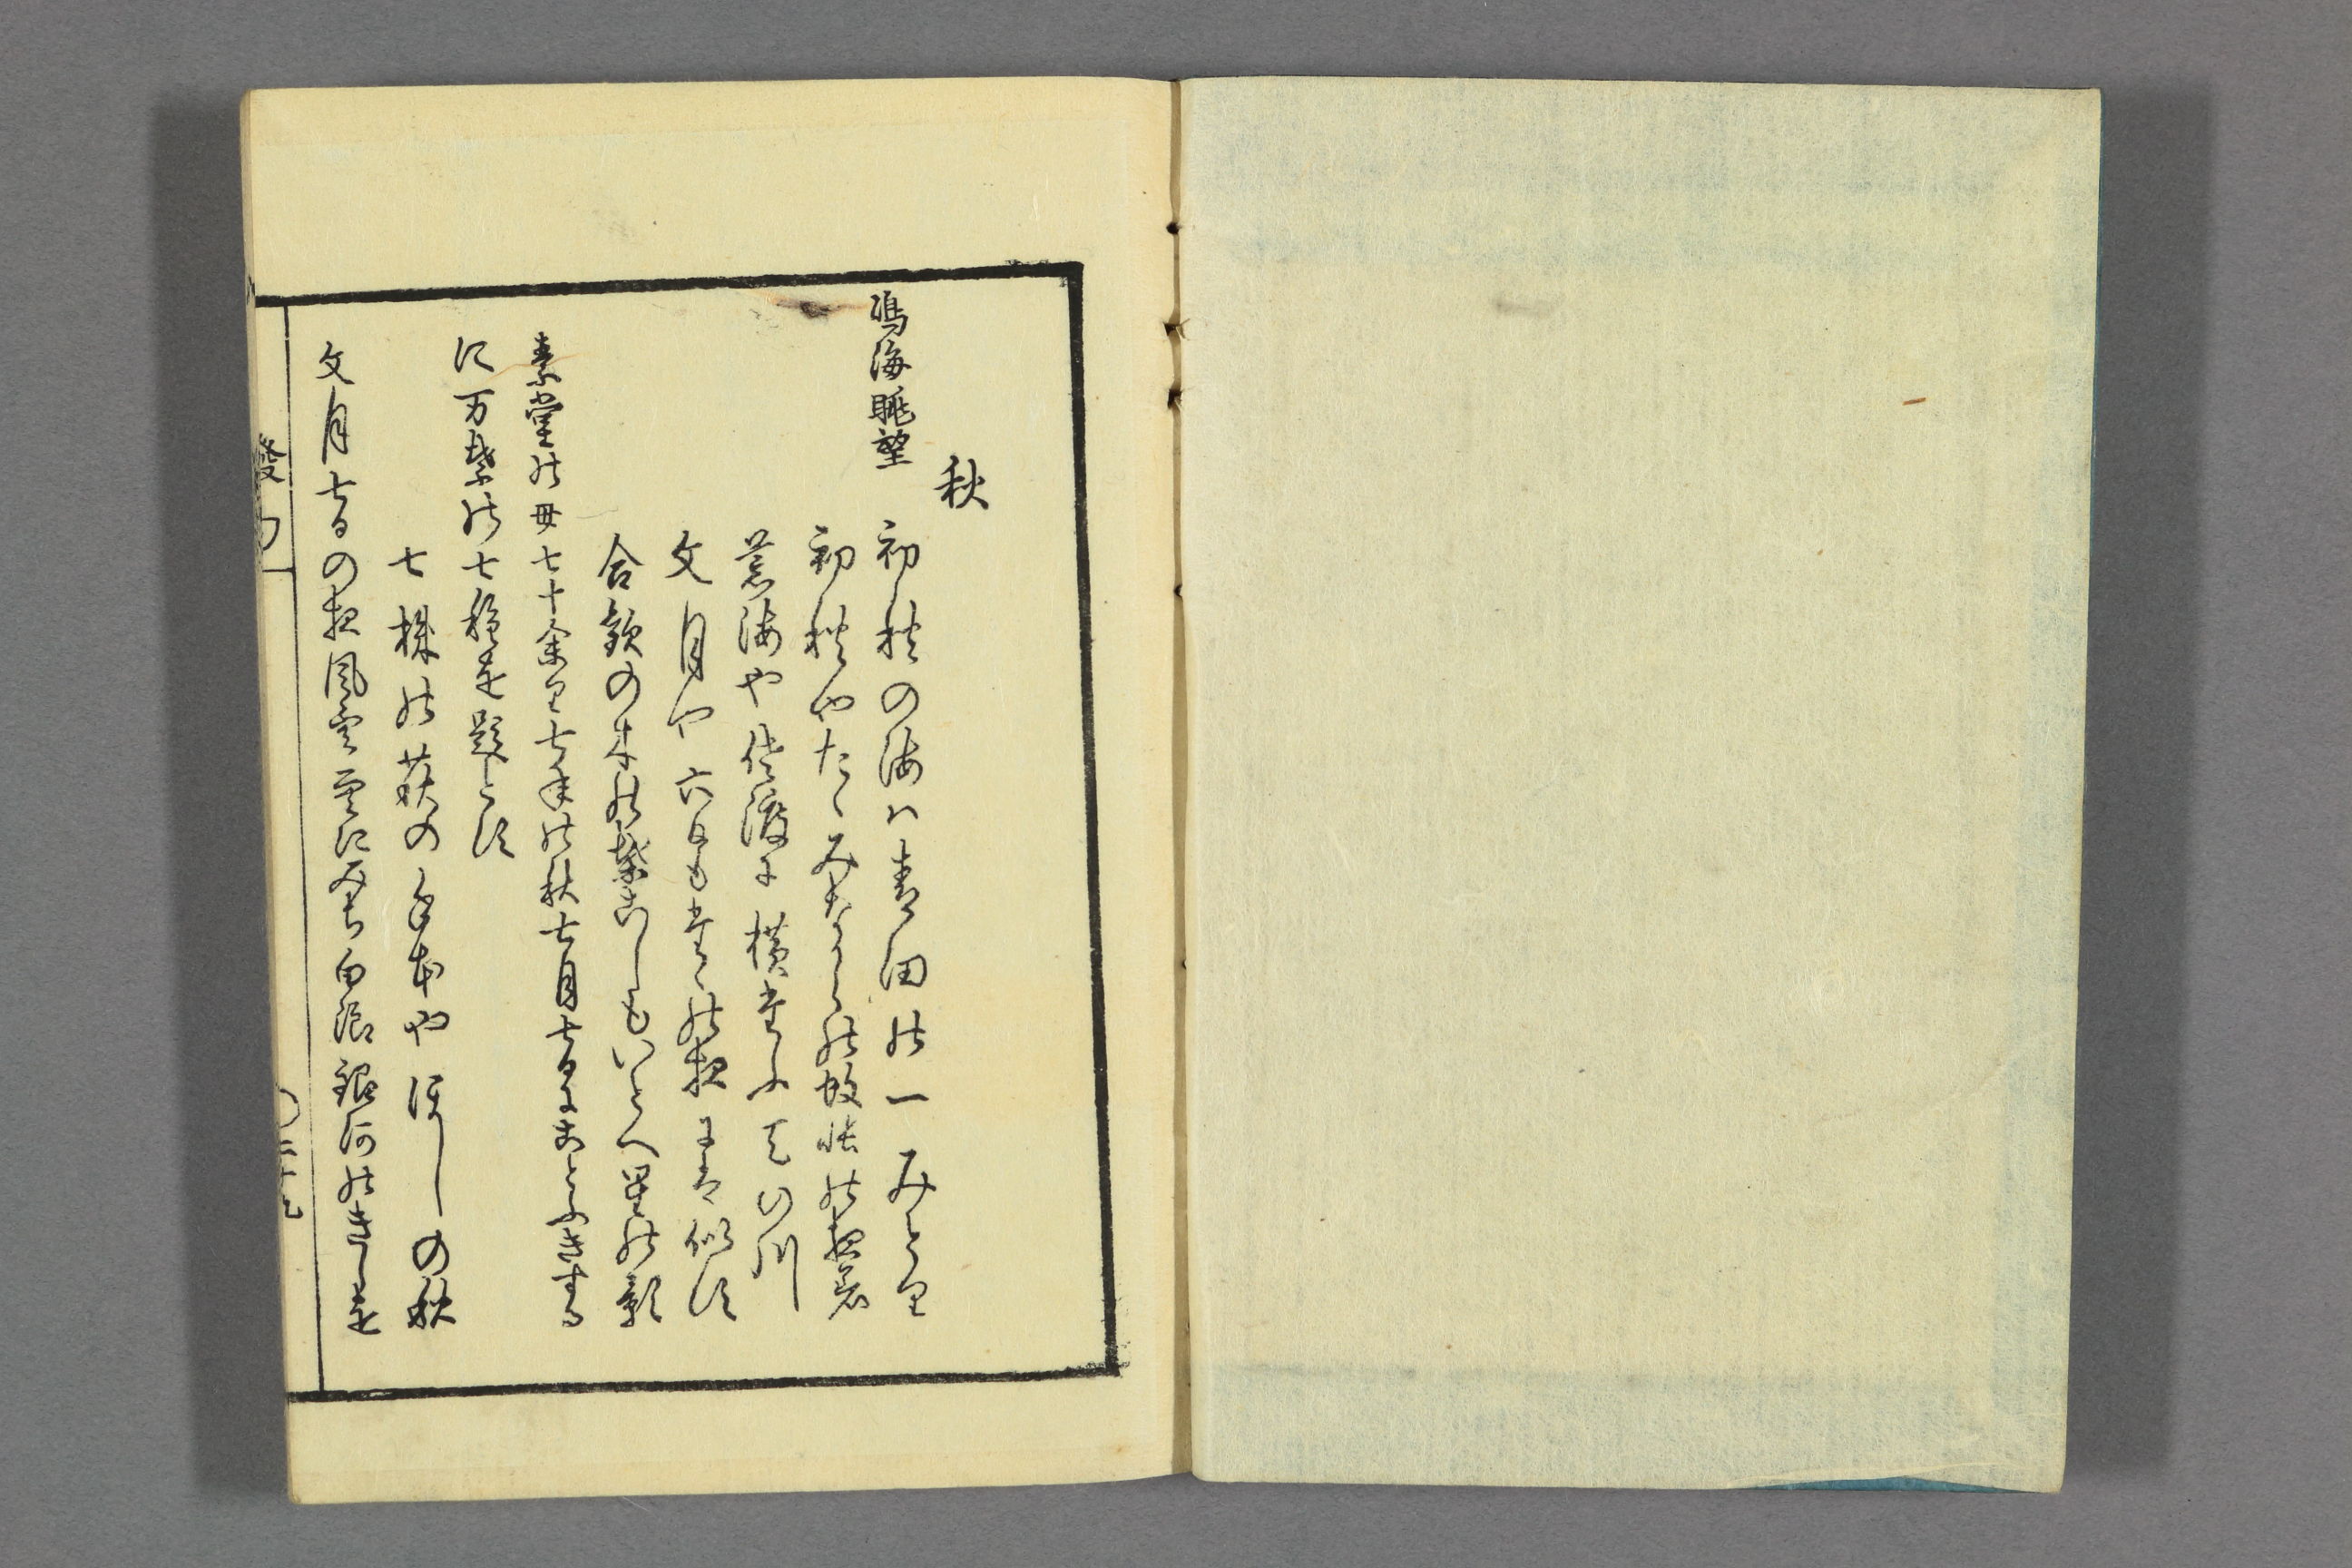 秋
鳴海眺望
初秋の海は青田の一みとり
初秋やたゝみなから の蚊帳の夜着
荒海や佐渡に横たふ天の川
文月や六日も常の夜には似す
合歓の木の葉こしもいとへ星の影
素堂の母七十余り七年の秋七月七日にことふきする
に万葉の七種を題とす
七株の萩の手本やほしの秋
文月七日の夜風雲雲にみち白浪銀河のきしを
發句
二十七